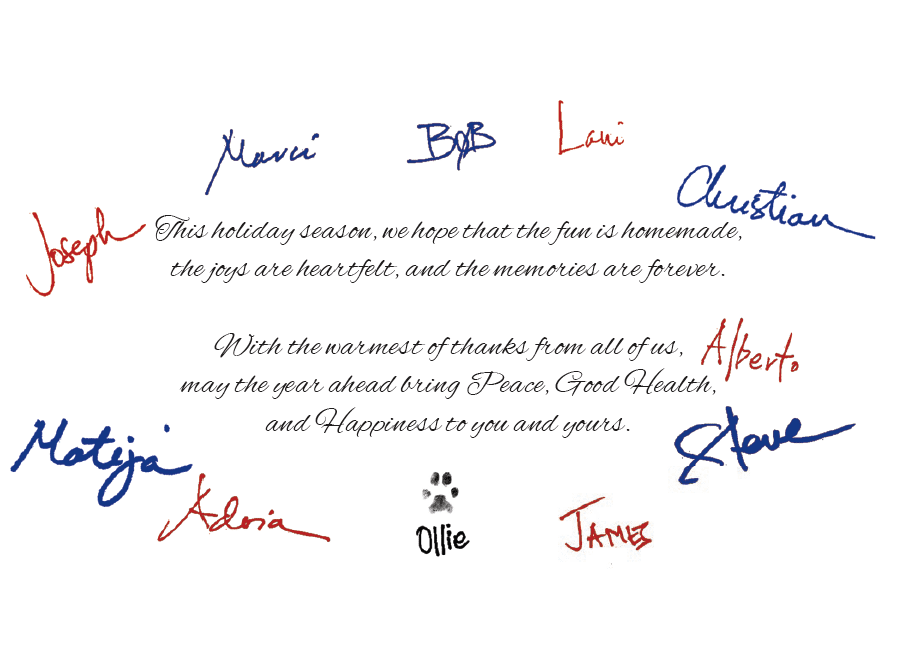 Marci
BOB
Lani
Christian
Joseph
This holiday season, we hope that the fun is homemade,
the joys are heartfelt, and the memories are forever.
With the warmest of thanks from all of us,
Alberto
may the year ahead bring Peace, Good Health,
and Happiness to you and yours.
Steve
Matija
Adria
Ollie
JAMES